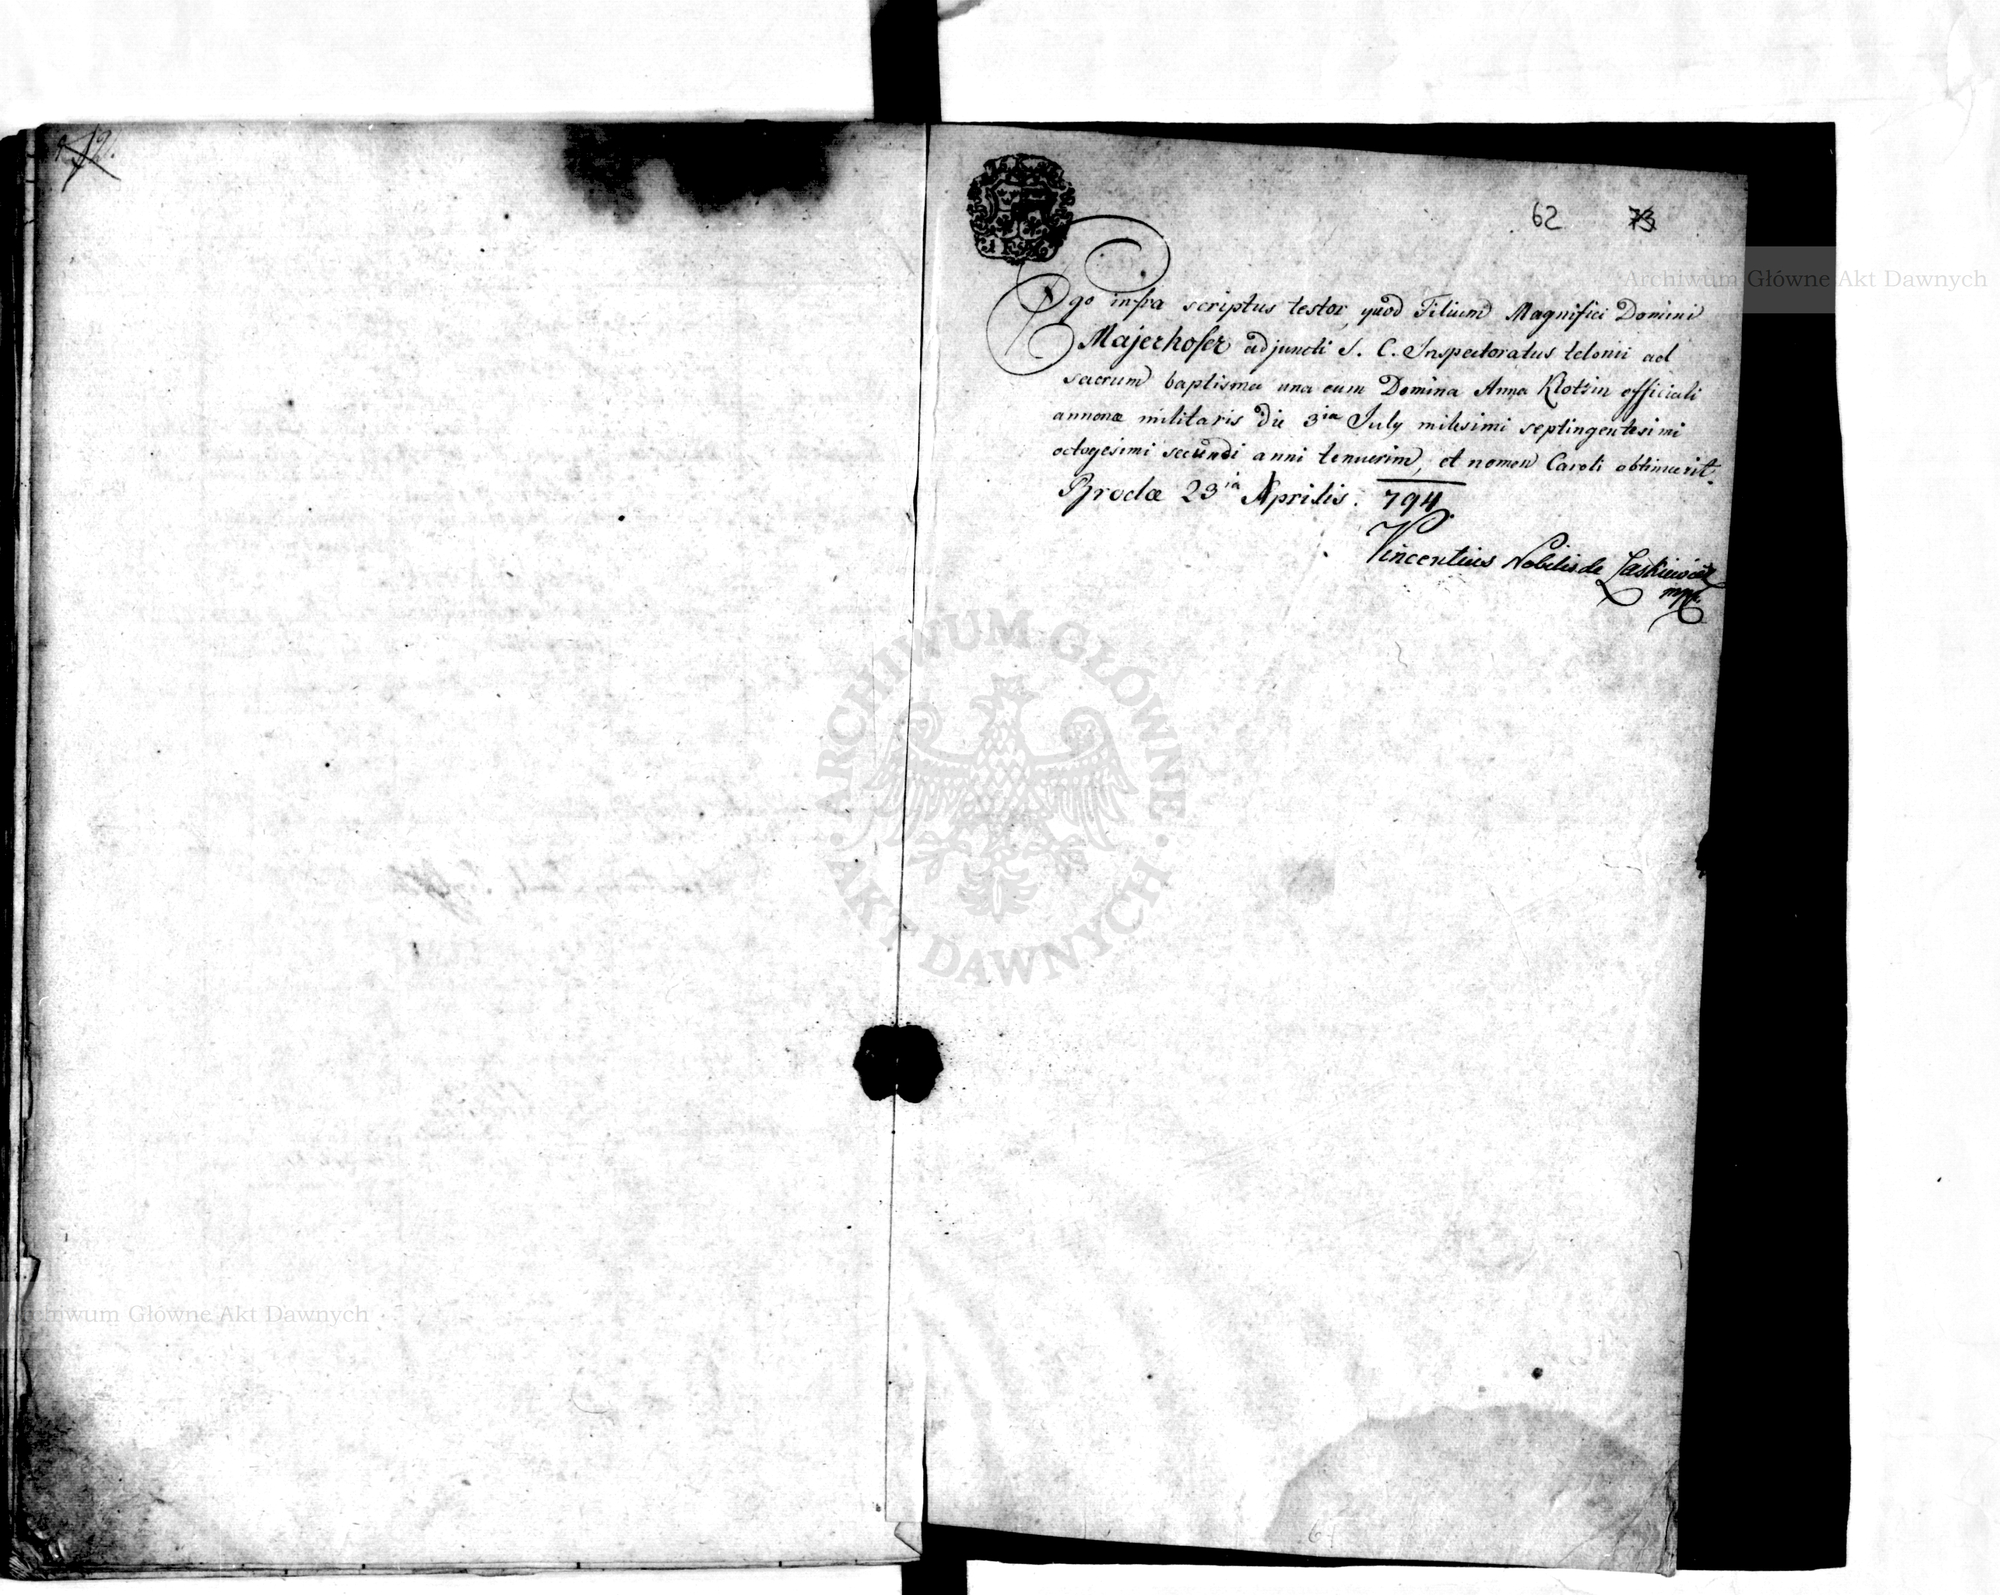 62 73
Ego infra scriptus testor, quod Filium Magnifici Domini
Majerhofer adjuncti S. C. Inspectoratus telonii ad
sacrum baptisma una cum Domina Anna Klotzin officiali
annonæ militaris die 3ia July milesimi septingentesimi
octogesimi secundi anni tenuerim, et nomen Caroli obtinuerit.
Brodæ 23ia Aprilis. 794
Vincentius Nobilis de Laskiewicz
mpp.
Archiwum Główne Akt Dawnych
ARCHIWUM GŁÓWNE AKT DAWNYCH
Archiwum Główne Akt Dawnych